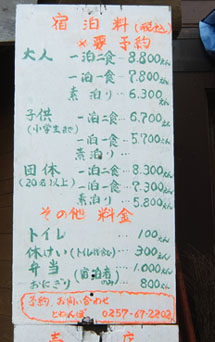 宿泊料(税込)
※要予約
大人 一泊二食…8.800えん
一泊一食…7.800えん
素泊り…6.300えん
子供 一泊二食…6.700えん
(小学生まで) 一泊一食…5.700えん
素泊り…
団体 一泊二食…8.300えん
(20名以上) 一泊一食…7.300えん
素泊り…5.800えん
その他料金
トイレ 100えん
休けい(トイレ代含む) 300えん
弁当(宿泊者のみ) 1.000えん
おにぎり 800えん
予約、お問い合わせ
0257-67-2202